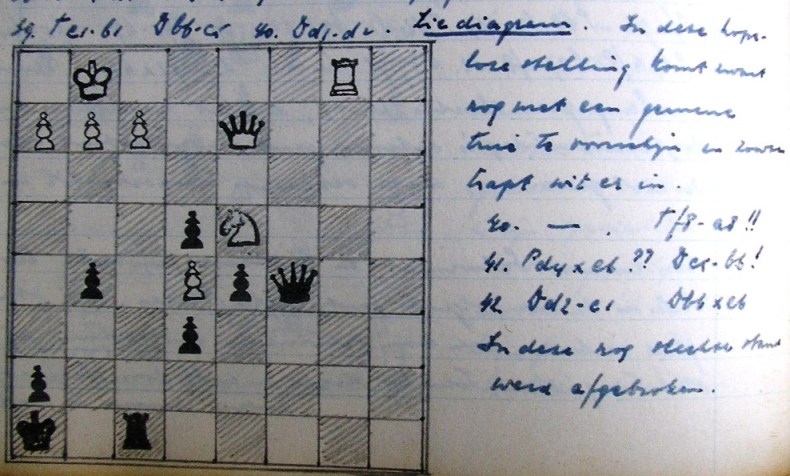 39. Te1-b1 Db6-c5 40. Dd1-d2. Zie diagram. In deze hope-
loze stelling komt zwart
nog met een gemene
truc te voorschijn en
trapt wit er in.
40. — . Tf8-a8!!
41. Pd4xe6?? Dc5-b6!
42 Dd2-e1 Db6xe6
In deze nog slechte stand
werd afgebroken.